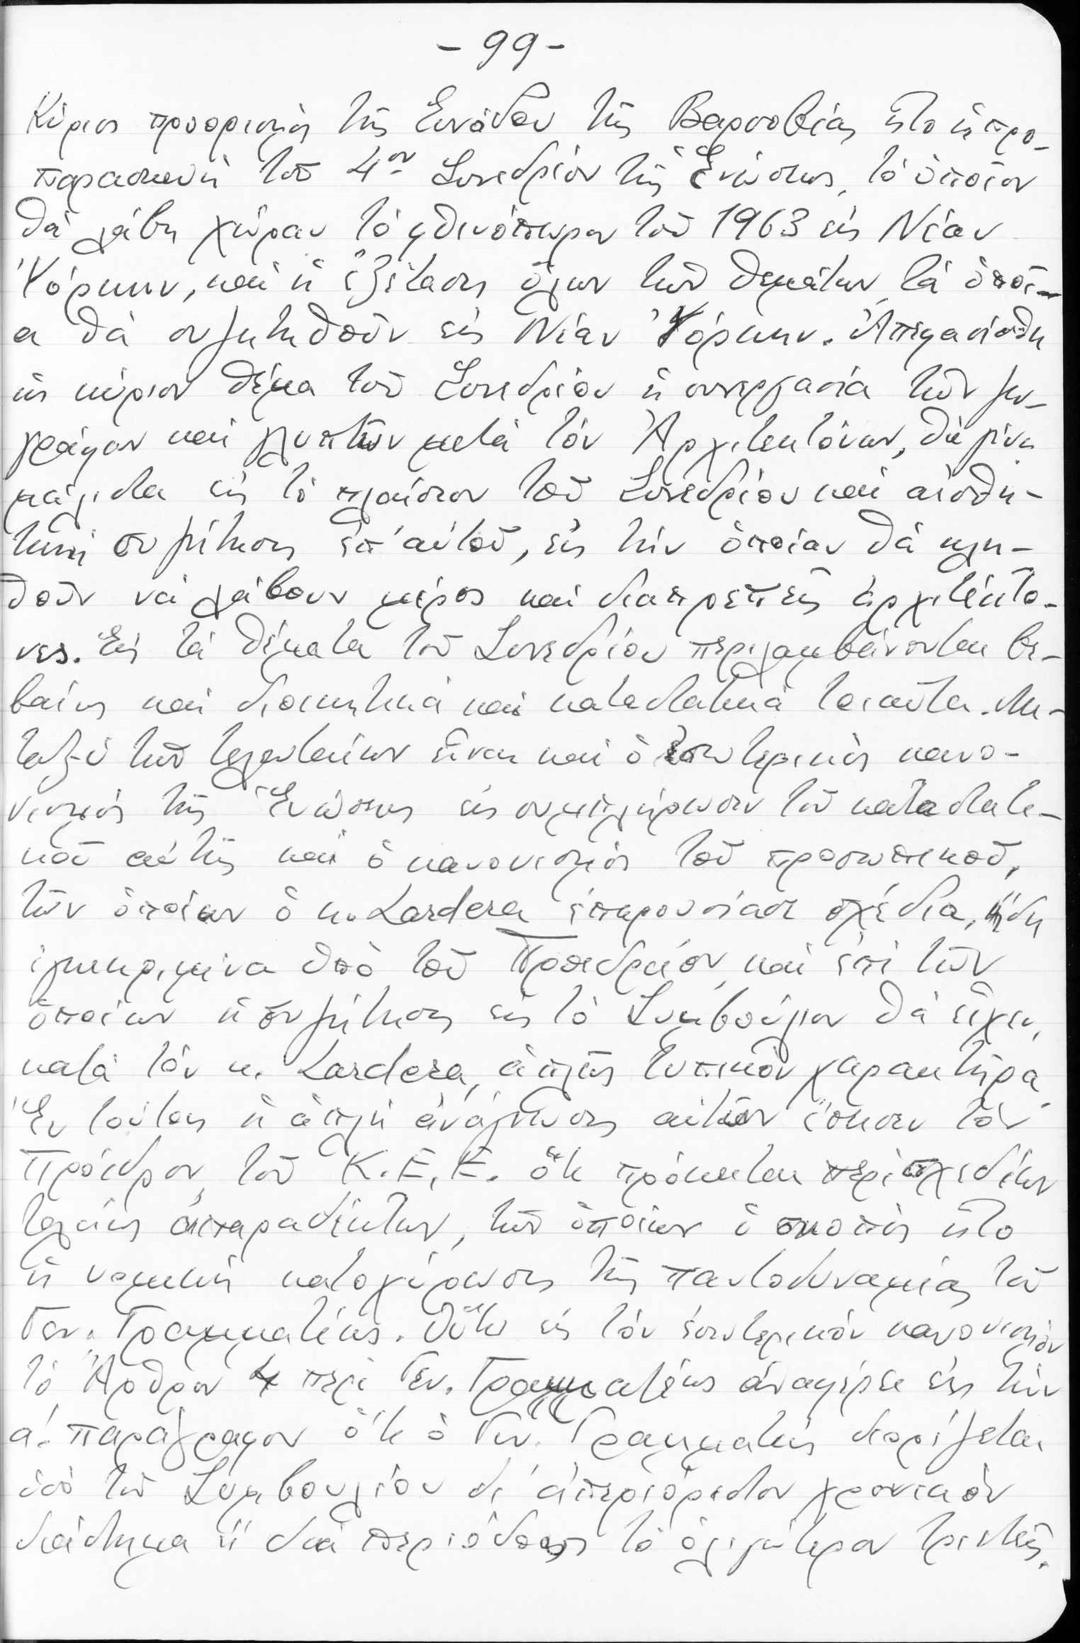 - 99 -
Κύριος προορισμός τῆς Συνόδου τῆς Βαρσοβίας ἦτο ἡ προ-
παρασκευή τοῦ 4ου Συνεδρίου τῆς Ἑνώσεως, τό ὁποῖον
θά λάβῃ χώραν τό φθινόπωρον τοῦ 1963 εἰς Νέαν
Ὑόρκην, καί ἡ ἐξέτασις ὅλων τῶν θεμάτων, τά ὁποῖ-
α θά συζητηθοῦν εἰς Νέαν Ὑόρκην. Ἀπεφασίσθη
ὡς κύριον θέμα τοῦ Συνεδρίου ἡ συνεργασία τῶν ζω-
γράφων καί γλυπτῶν μετά τῶν Ἀρχιτεκτόνων, θά γίνῃ
μάλιστα εἰς τό πλαίσιον τοῦ Συνεδρίου καί αἰσθη-
τική συζήτησις ἐπ' αὐτοῦ, εἰς τήν ὁποίαν θά κλη-
θοῦν νά λάβουν μέρος καί διαπρεπεῖς ἀρχιτέκτο-
νες. Εἰς τά θέματα τοῦ Συνεδρίου περιλαμβάνονται βε-
βαίως καί διοικητικά καί καταστατικά τοιαῦτα. Με-
ταξύ τῶν τελευταίων εἶναι καί ὁ ἐσωτερικός κανο-
νισμός τῆς Ἑνώσεως εἰς συμπλήρωσιν τοῦ καταστατι-
κοῦ αὐτῆς καί ὁ κανονισμός τοῦ προσωπικοῦ,
τῶν ὁποίων ὁ κ. Lardera ἐπαρουσίασε σχέδια, ἤδη
ἐγκεκριμένα ὑπό τοῦ Προεδρείου, καί ἐπί τῶν
ὁποίων ἡ συζήτησις εἰς τό Συμβούλιον θά εἶχεν,
κατά τόν κ. Lardera, ἁπλῶς τυπικόν χαρακτῆρα.
Ἐν τούτοις ἡ ἁπλή ἀνάγνωσις αὐτῶν ἔπεισεν τόν
Πρόεδρον τοῦ Κ.Ε.Ε. ὅτι πρόκειται περί σχεδίων
τελείως ἀπαραδέκτων, τῶν ὁποίων ὁ σκοπός ἦτο
ἡ νομική κατοχύρωσις τῆς παντοδυναμίας τοῦ
Γεν. Γραμματέως. Οὕτω εἰς τόν ἐσωτερικόν κανονισμόν
τό Ἄρθρον 4 περί Γεν. Γραμματέως ἀναφέρει εἰς τήν
α'. παράγραφον ὅτι ὁ Γεν. Γραμματεύς διορίζεται
ὑπό τοῦ Συμβουλίου δι' ἀπεριόριστον χρονικόν
διάστημα ἤ διά περιόδους τό ὀλιγώτερον τριετεῖς.